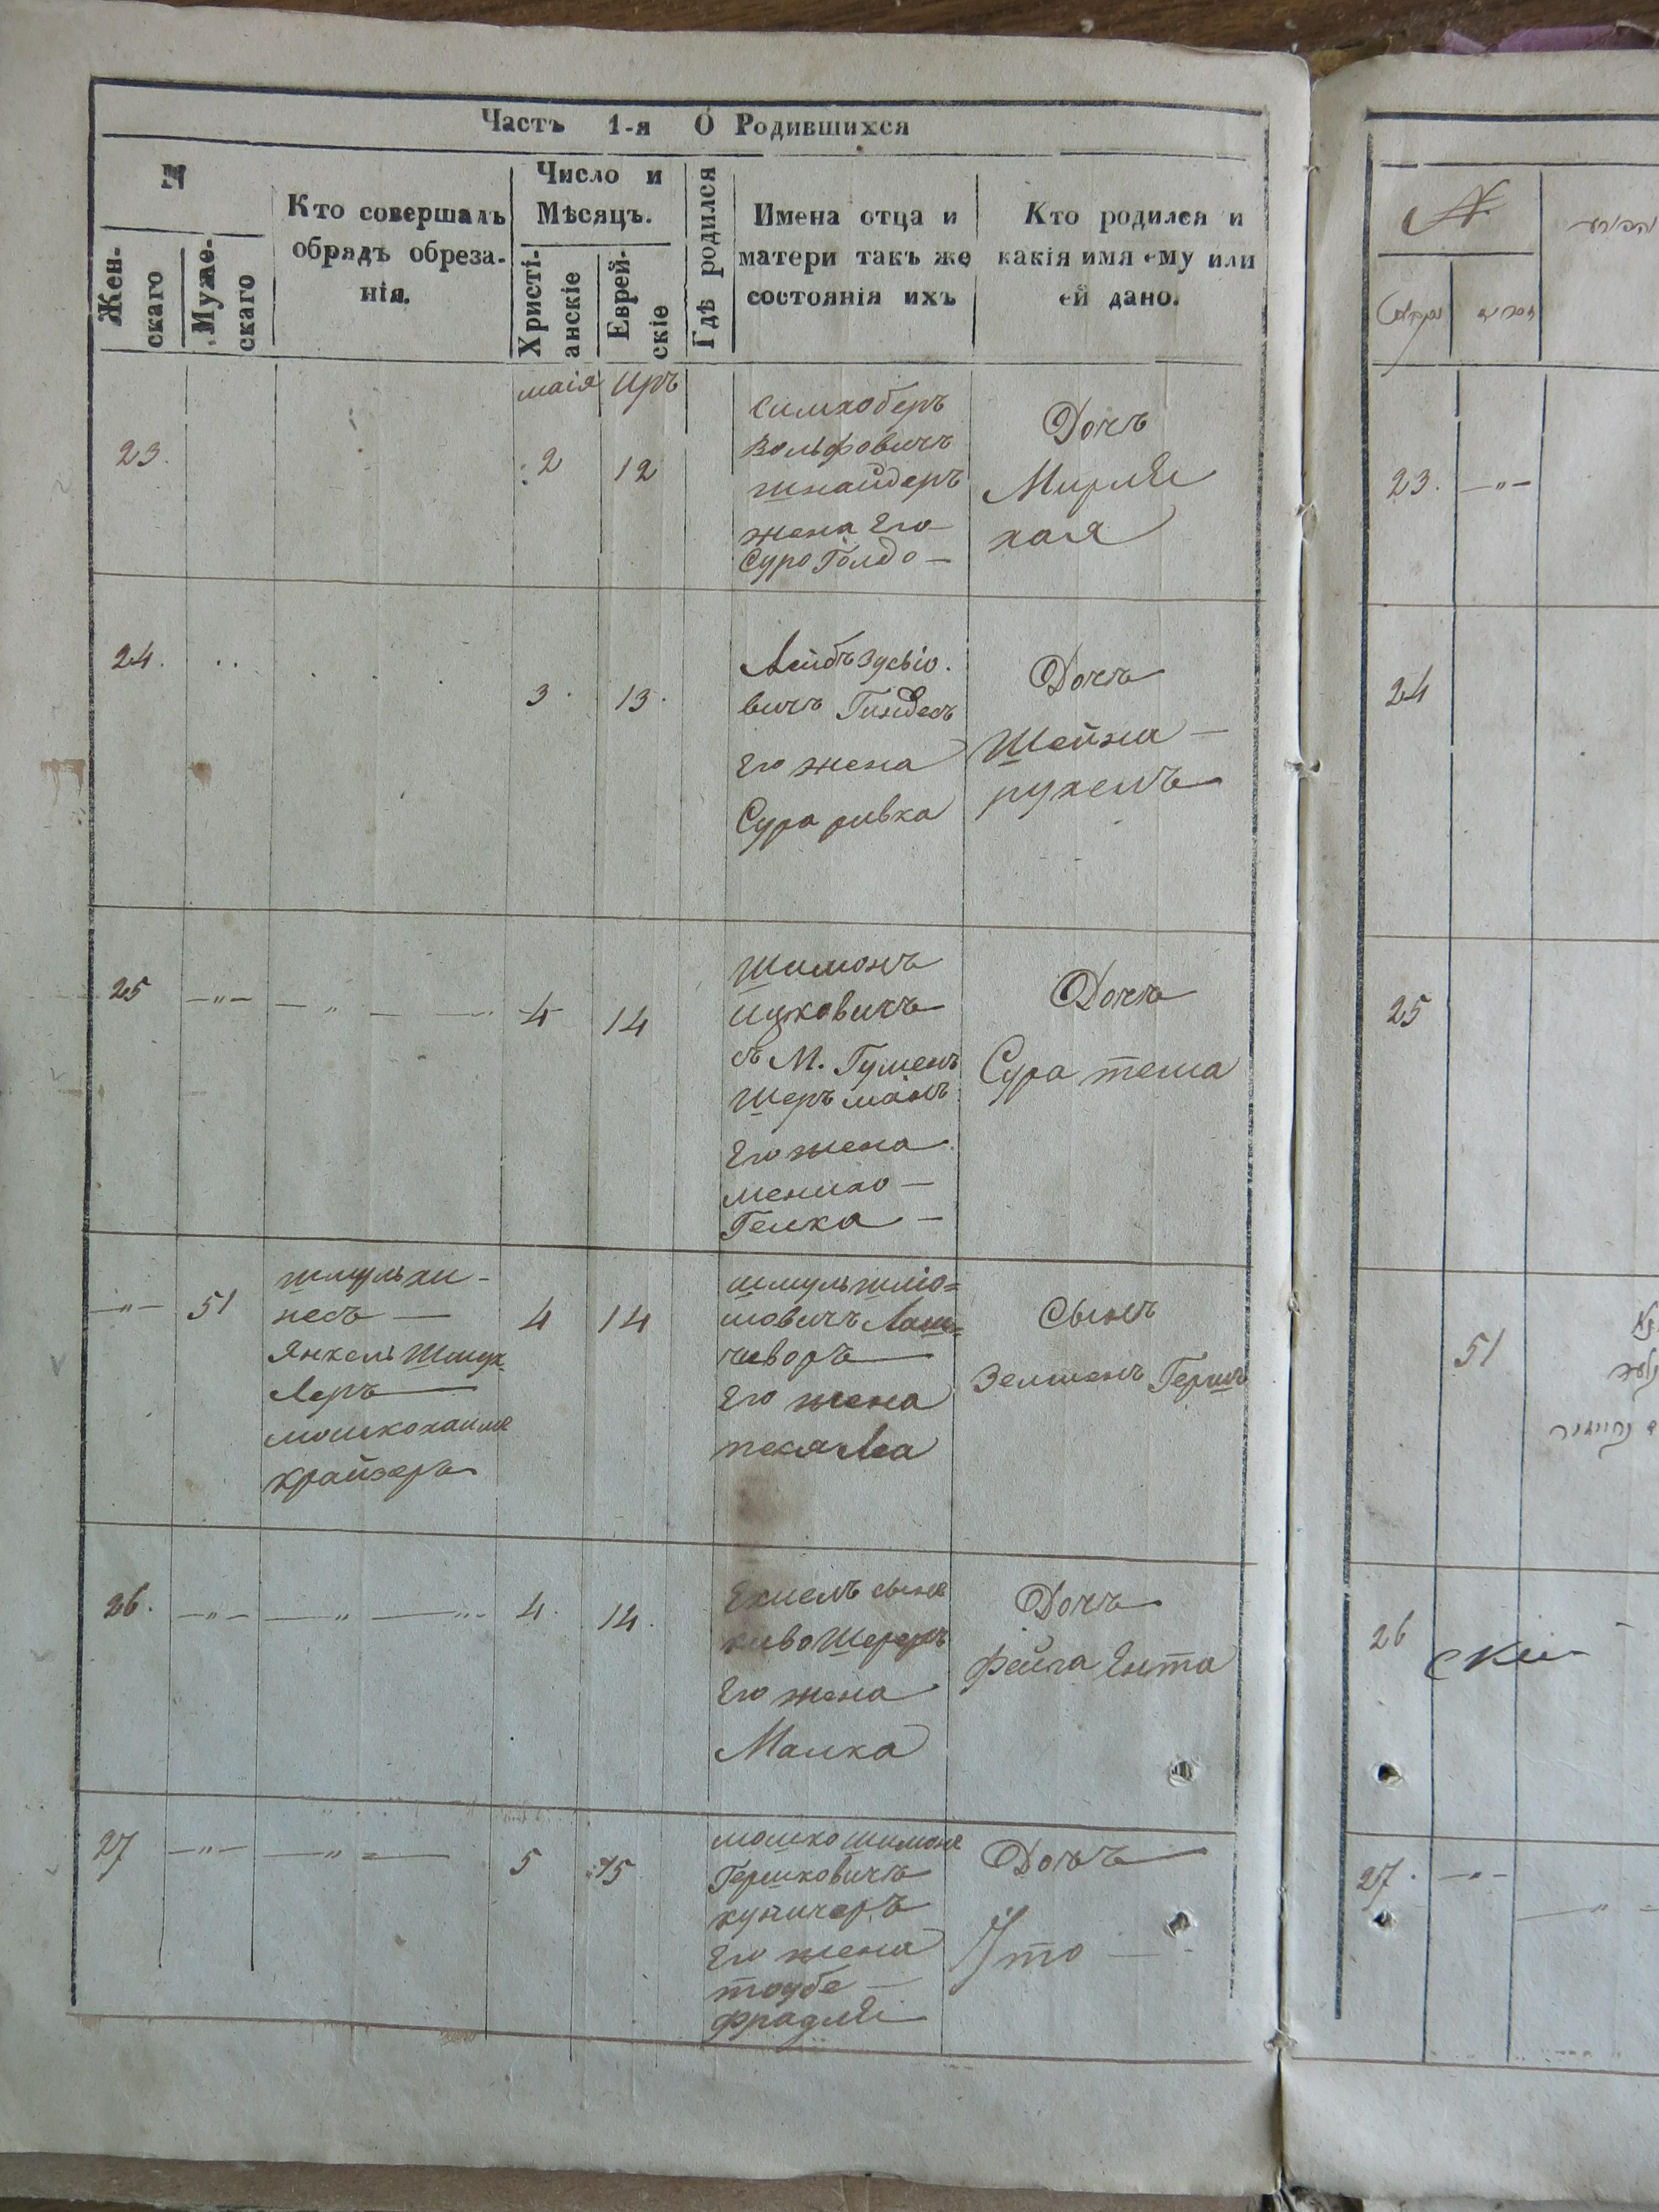 Часть 1-я О Родившихся
№
Жен-
скаго
Муже-
скаго
Кто совершалъ
обрядъ обреза-
нія.
Число и
Мѣсяцъ.
Христі-
анскіе
Еврей-
скіе
Гдѣ родился
Имена отца и
матери такъ же
состоянія ихъ
Кто родился и
какія имя ему или
ей дано.
маія Иръ
23.
2
12
Симхоберъ
Вольфовичъ
шнайдеръ
жена Его
Суро Голдо —
Дочь
Мирля
хая
24.
3
13
Лейбъ Зусьіо
вичъ Гиндесъ
Его жена
Сура ривка
Дочь
Шейна —
рухель
25
4
14
Шимонъ
Ицковичъ
съ М. Гумень
Шеръманъ
Его жена
Генка —
Дочь
Сура тема
51
шмуль хи-
несъ —
Янкель
леръ
мошкохаимъ
крайзеръ
4
14
шмуль шлiо=
мовичъ
Его жена
Леа
Сынъ
Зелменъ Гершъ
26.
4
14
Ехиель сынъ
Его жена
Малка
Дочь
фейга Ента
27
5
15
мошко шимонъ
Гершковичъ
Его жена
таубе —
фрадля
Дочь
Іто —
№
23.
24
25
51
26
скій
27.